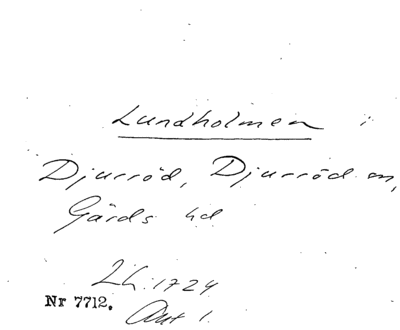 Lundholmen i
Djurröd, Djurröd sn,
Gärds hd
Lh. 1724
Nr 7712. Akt 1.